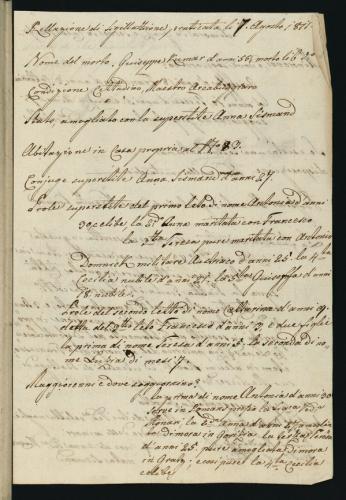 Rellazione di suggellazione, praticata li 7. Agosto, 1811.
Nome del morto. Giuseppe Kramar d'anni 56, morto li
Condizione Cittadino, Maestro
Stato, amogliato con la superstite Anna Sismond
Abitazione in Casa propria al N.ro 83.
Conjuge superstite Anna Sismond d'anni 27
Prole superstite del primo letto di nome Antonia d'anni
30 celibe, la 2da Anna maritata con Francesco
la 3za Teresa pure maritata con Antonio
Dominick militare Austriaco d'anni 25. la 4.ta
Cecilia nubile d'anni 21. la 5.ta Giuseffa d'anni
18 nubile.
Prole del secondo letto di nome Catterina d'anni 9.
detta del 3zo letto Francesco d'anni 3, e due figlie
la prima di nome Teresa d'anni 5. la seconda di no=
me Luigia di mesi 7.
Maggiorenni e dove soggiornino?
la prima di nome Antonia d'anni 30
Serve in
la 2da Anna d'anni
dimora in Gorizia la terza Teresa
d'anni 25. pure amogliata dimora
in Gratz, e così pure la 4.ta Cecilia
celibe